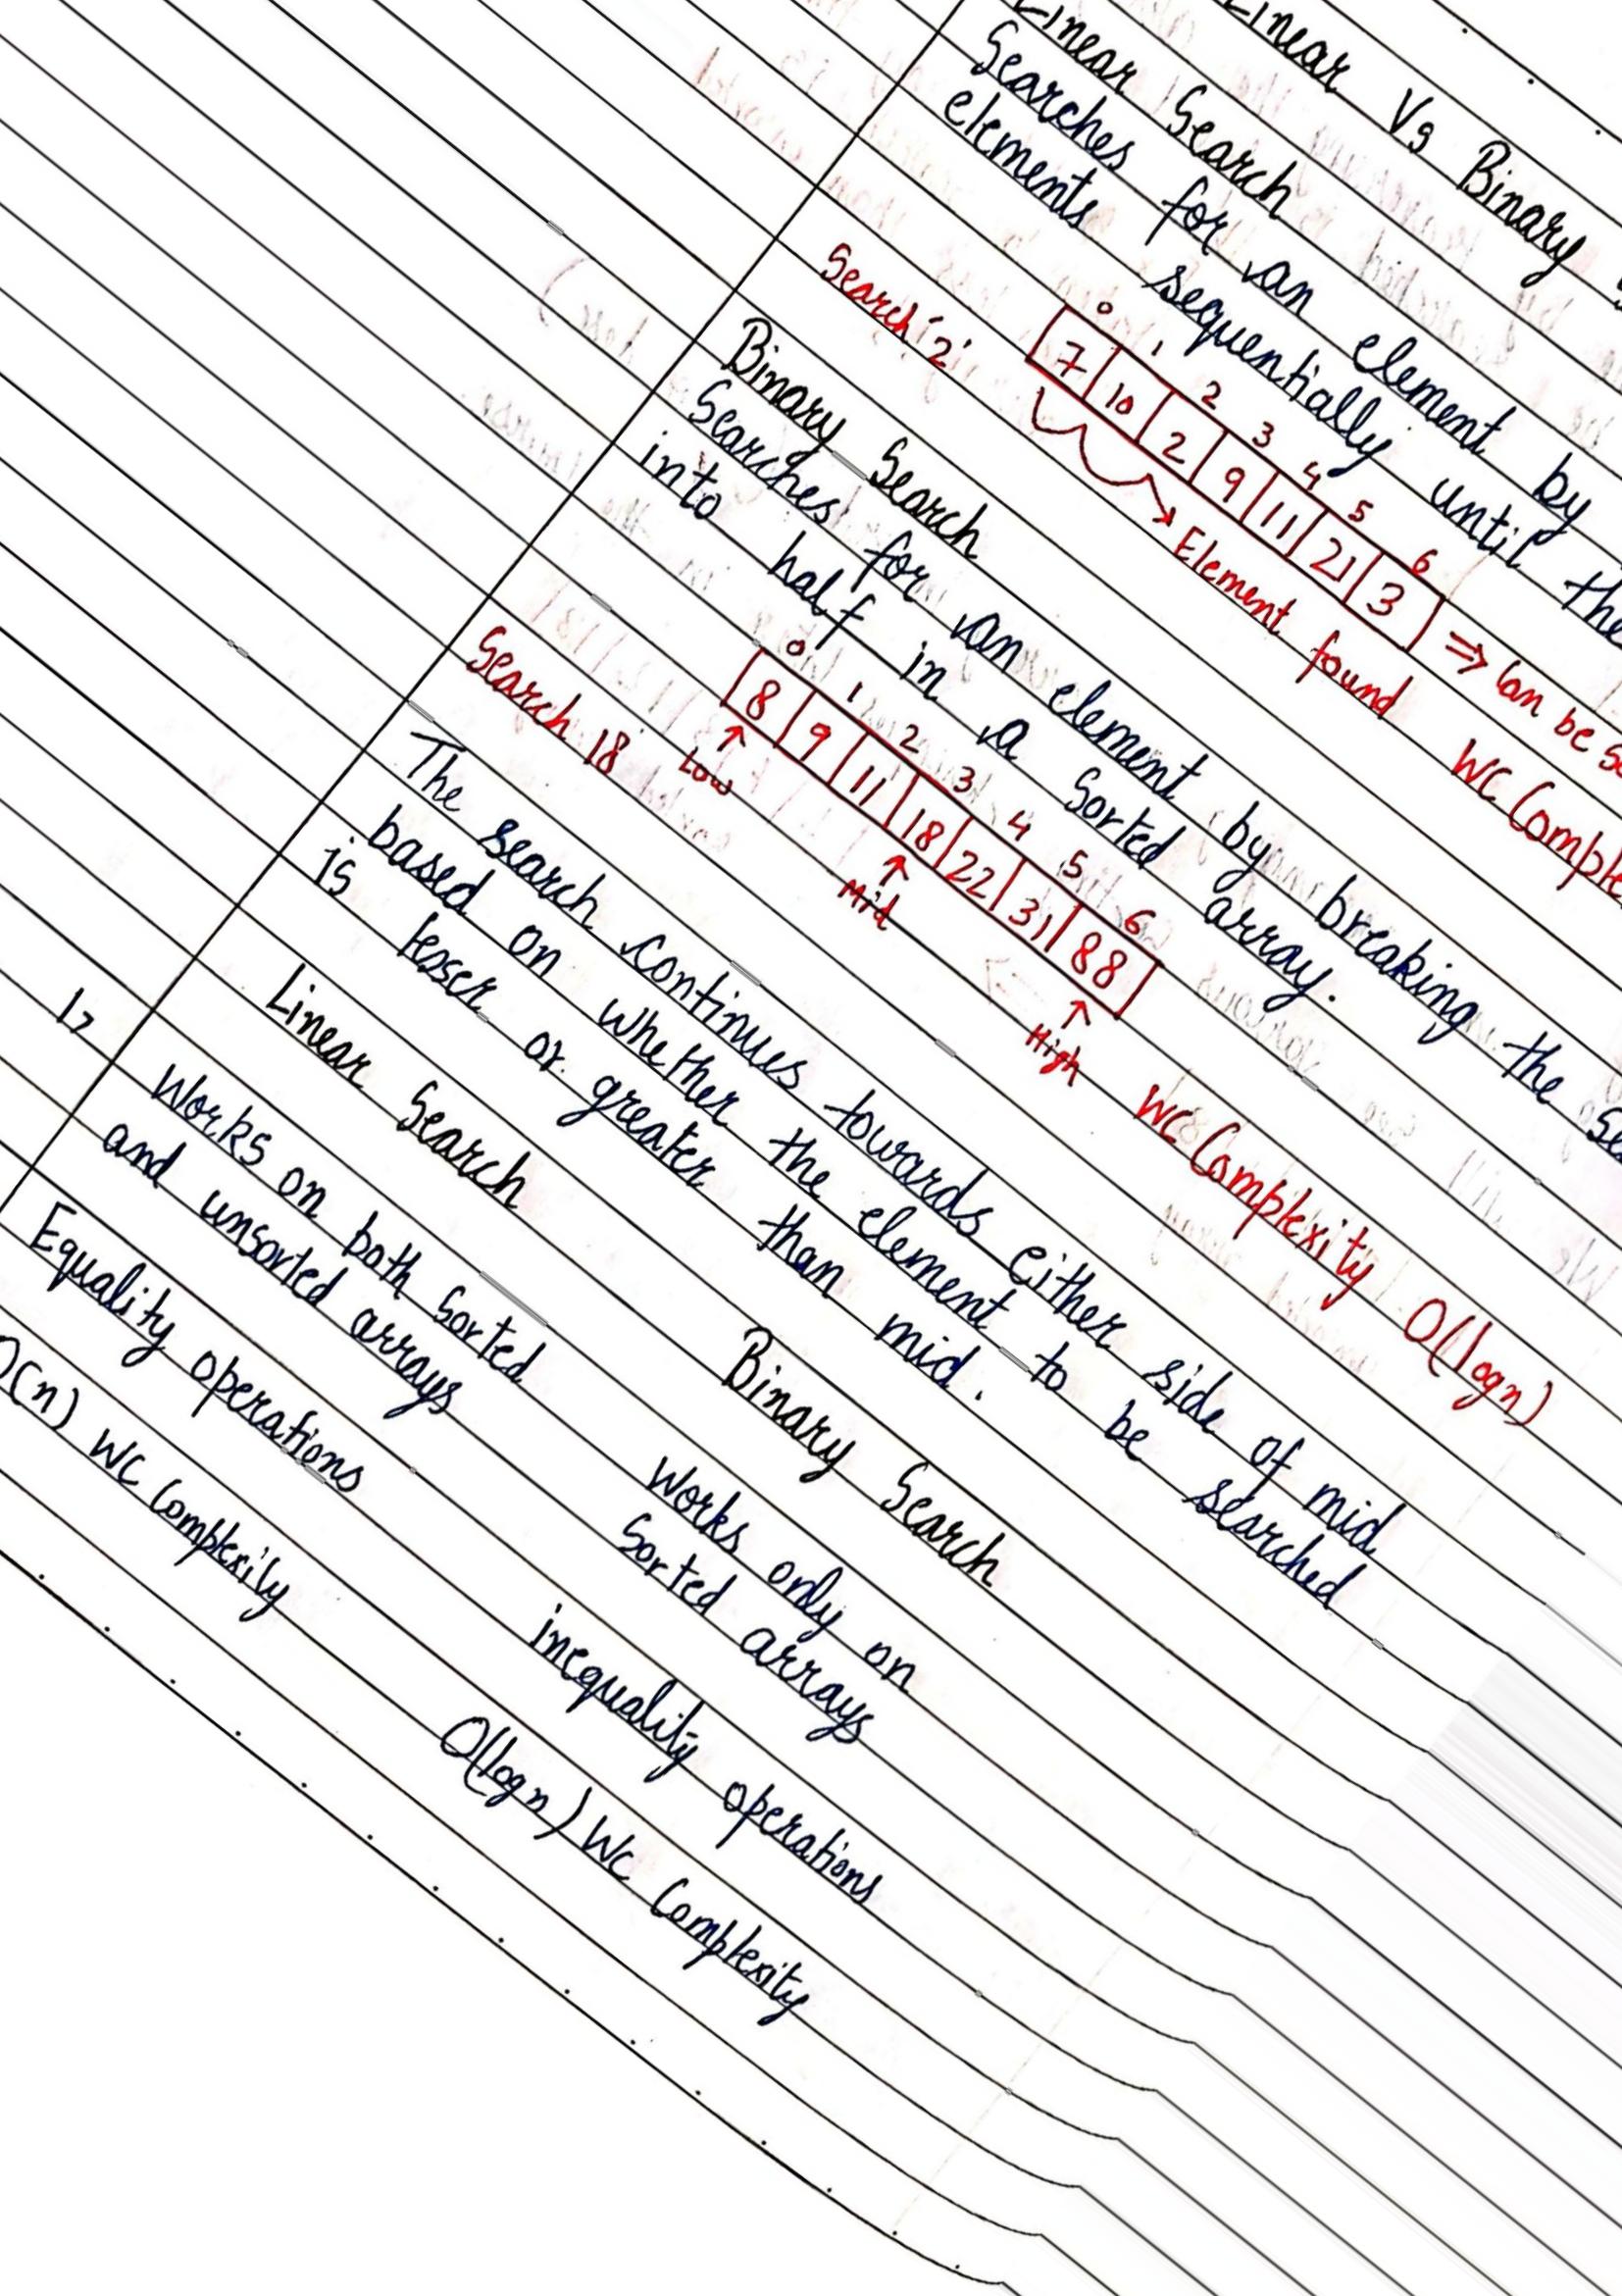 Linear Vs Binary
Linear Search
Searches for an element by
elements sequentially until the
0 1 2 3 4 5 6
7 10 2 9 11 21 3 ⇒ Can be
Search '2'
Element found
WC
Binary Search
Searches for an element by breaking the
into half in a sorted array.
0 1 2 3 4 5 6
8 9 11 18 22 31 88
Search 18 Low Mid High
WC Complexity O(logn)
The search continues towards either side of mid
based on whether the element to be searched
is lesser or greater than mid.
Linear Search Binary Search
1> Works on both sorted Works only on
and unsorted arrays sorted arrays
Equality operations inequality operations
O(n) WC Complexity O(logn) WC Complexity